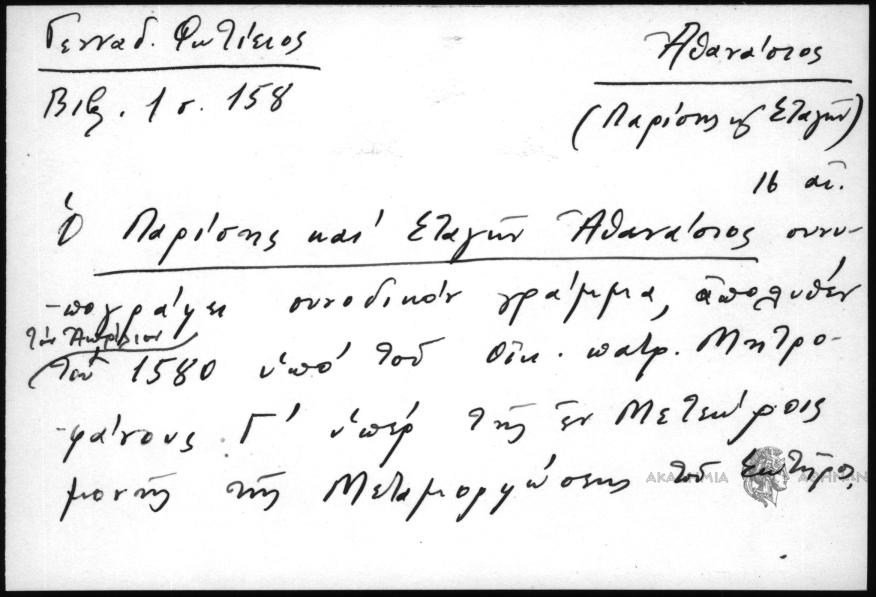 Γενναδ. Φωτίειος
Βιβλ. 1 σ. 158
Ἀθανάσιος
(Παρίσης κ Σταγῶν)
16 αἰ.
Ὁ Παρίσης καὶ Σταγῶν Ἀθανάσιος συνυ-
-πογράφει συνοδικὸν γράμμα, ἀπολυθὲν
τὸν Ἀπρίλιον
τοῦ 1580 ὑπὸ τοῦ οἰκ. πατρ. Μητρο-
-φάνους Γ' ὑπὲρ τῆς ἐν Μετεώροις
μονῆς τῆς Μεταμορφώσεως τοῦ Σωτῆρος.
ΑΚΑΔΗΜΙΑ ΑΘΗΝΩΝ